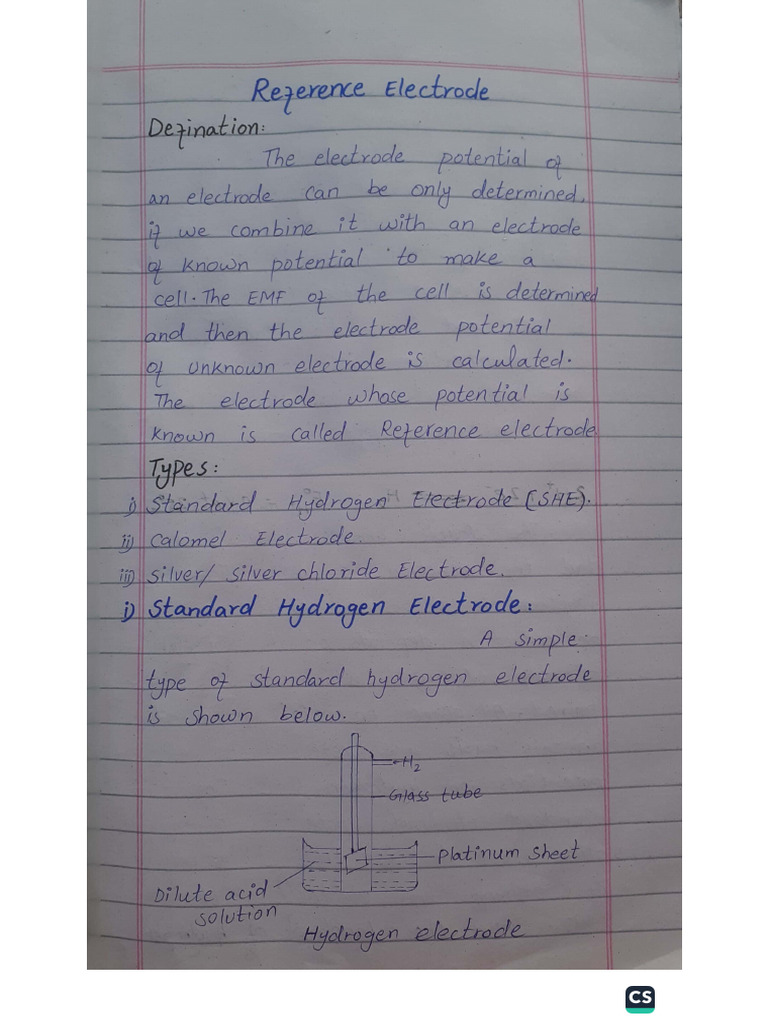 Reference Electrode
Defination:
The electrode potential of
an electrode can be only determined,
if we combine it with an electrode
of known potential to make a
cell. The EMF of the cell is determined
and then the electrode potential
of unknown electrode is calculated.
The electrode whose potential is
known is called Reference electrode
Types:
i) Standard Hydrogen Electrode (SHE).
ii) Calomel Electrode.
iii) Silver/ Silver chloride Electrode.
i) Standard Hydrogen Electrode:
A simple
type of standard hydrogen electrode
is shown below.
H2
Glass tube
Platinum Sheet
Dilute acid
solution
Hydrogen electrode
CS